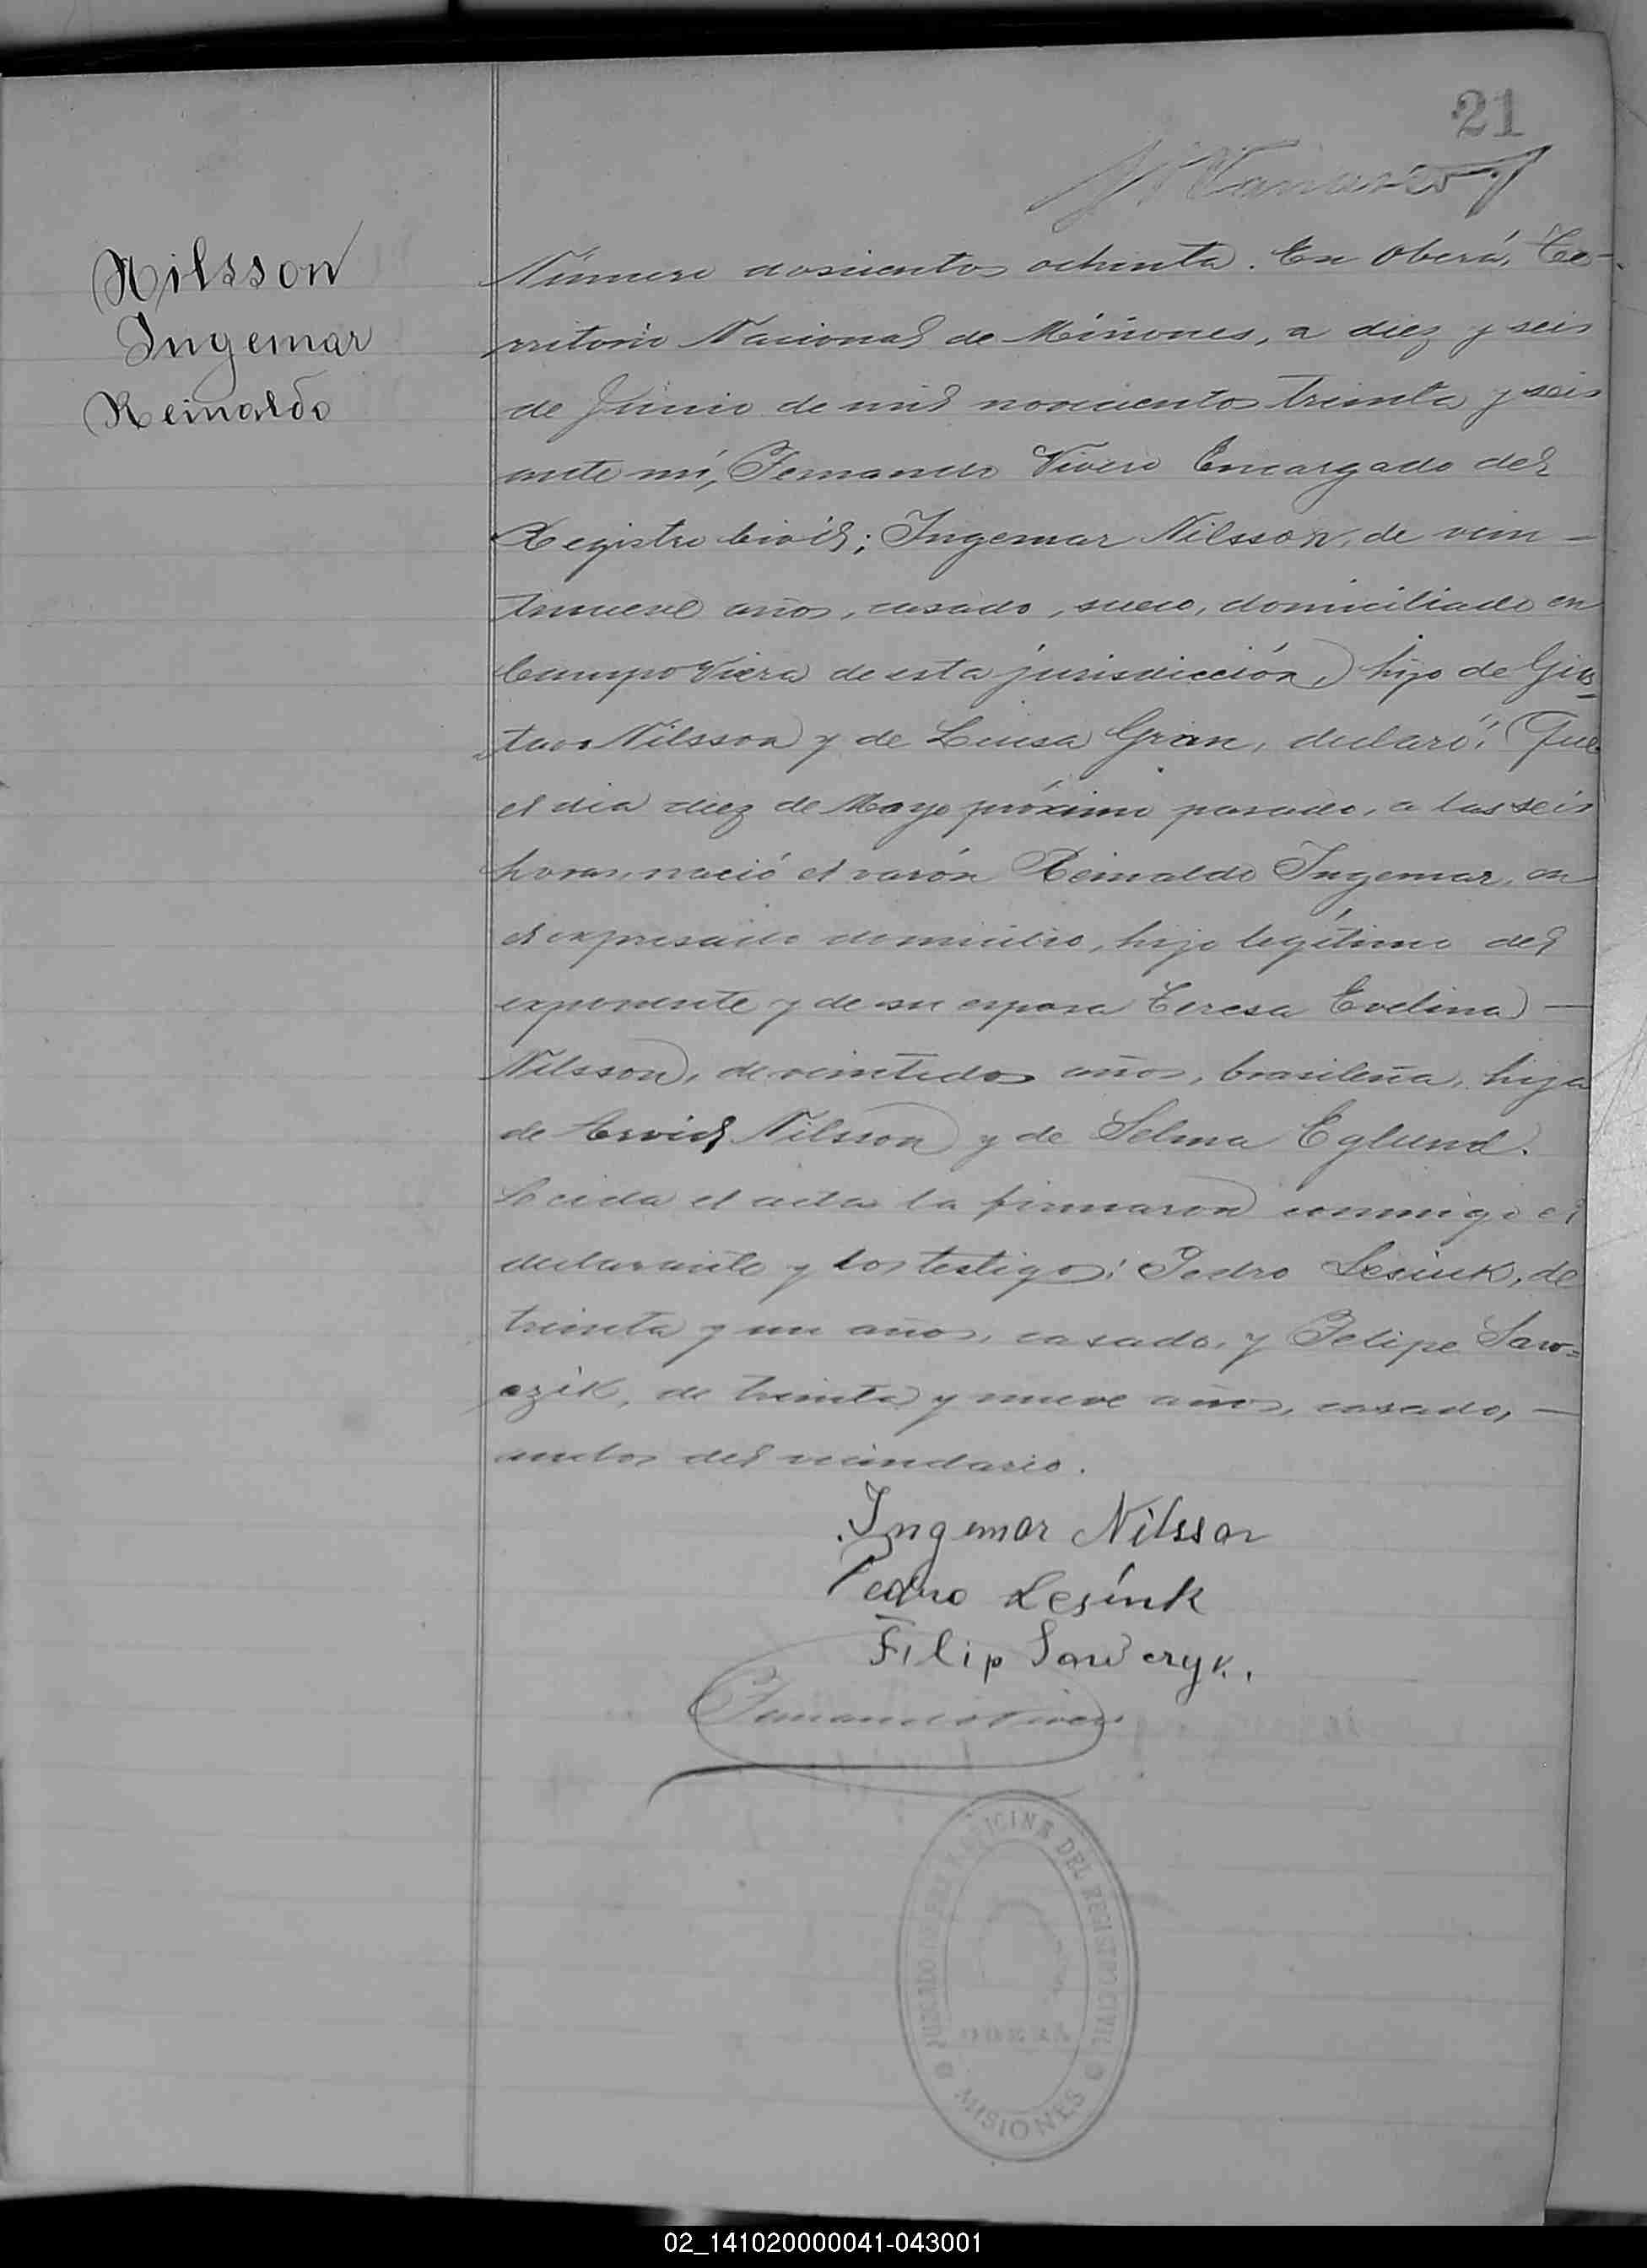 21
Nilsson
Ingemar
Reinaldo
Número doscientos ochenta. En Oberá, Te-
rritorio Nacional de Misiones, a diez y seis
de Junio de mil novecientos treinta y seis
ante mí, Fernando Vivero Encargado del
Registro Civil; Ingemar Nilsson, de vein-
tinueve años, casado, sueco, domiciliado en
Campo Viera de esta jurisdicción, hijo de Gus-
tavo Nilsson y de Luisa Gran, declaró: Que
el día diez de Mayo próximo pasado, a las seis
horas, nació el varón Reinaldo Ingemar, en
el expresado domicilio, hijo legítimo del
exponente y de su esposa Teresa Evelina —
Nilsson, de veintidos años, brasileña, hija
de Arvid Nilsson y de Selma Eglund.
Leida el acta la firmaron conmigo el
declarante y los testigos: Pedro Lesiuk, de
treinta y un años, casado, y Felipe Saw=
czik, de treinta y nueve años, casado, —
ambos del vecindario.
Ingemar Nilsson
Pedro Lesiuk
Filip Sawczyk.
Fernando Vivero
JUZGADO DE PAZ Y OFICINA DEL REGISTRO CIVIL
OBERA
MISIONES
02_141020000041-043001